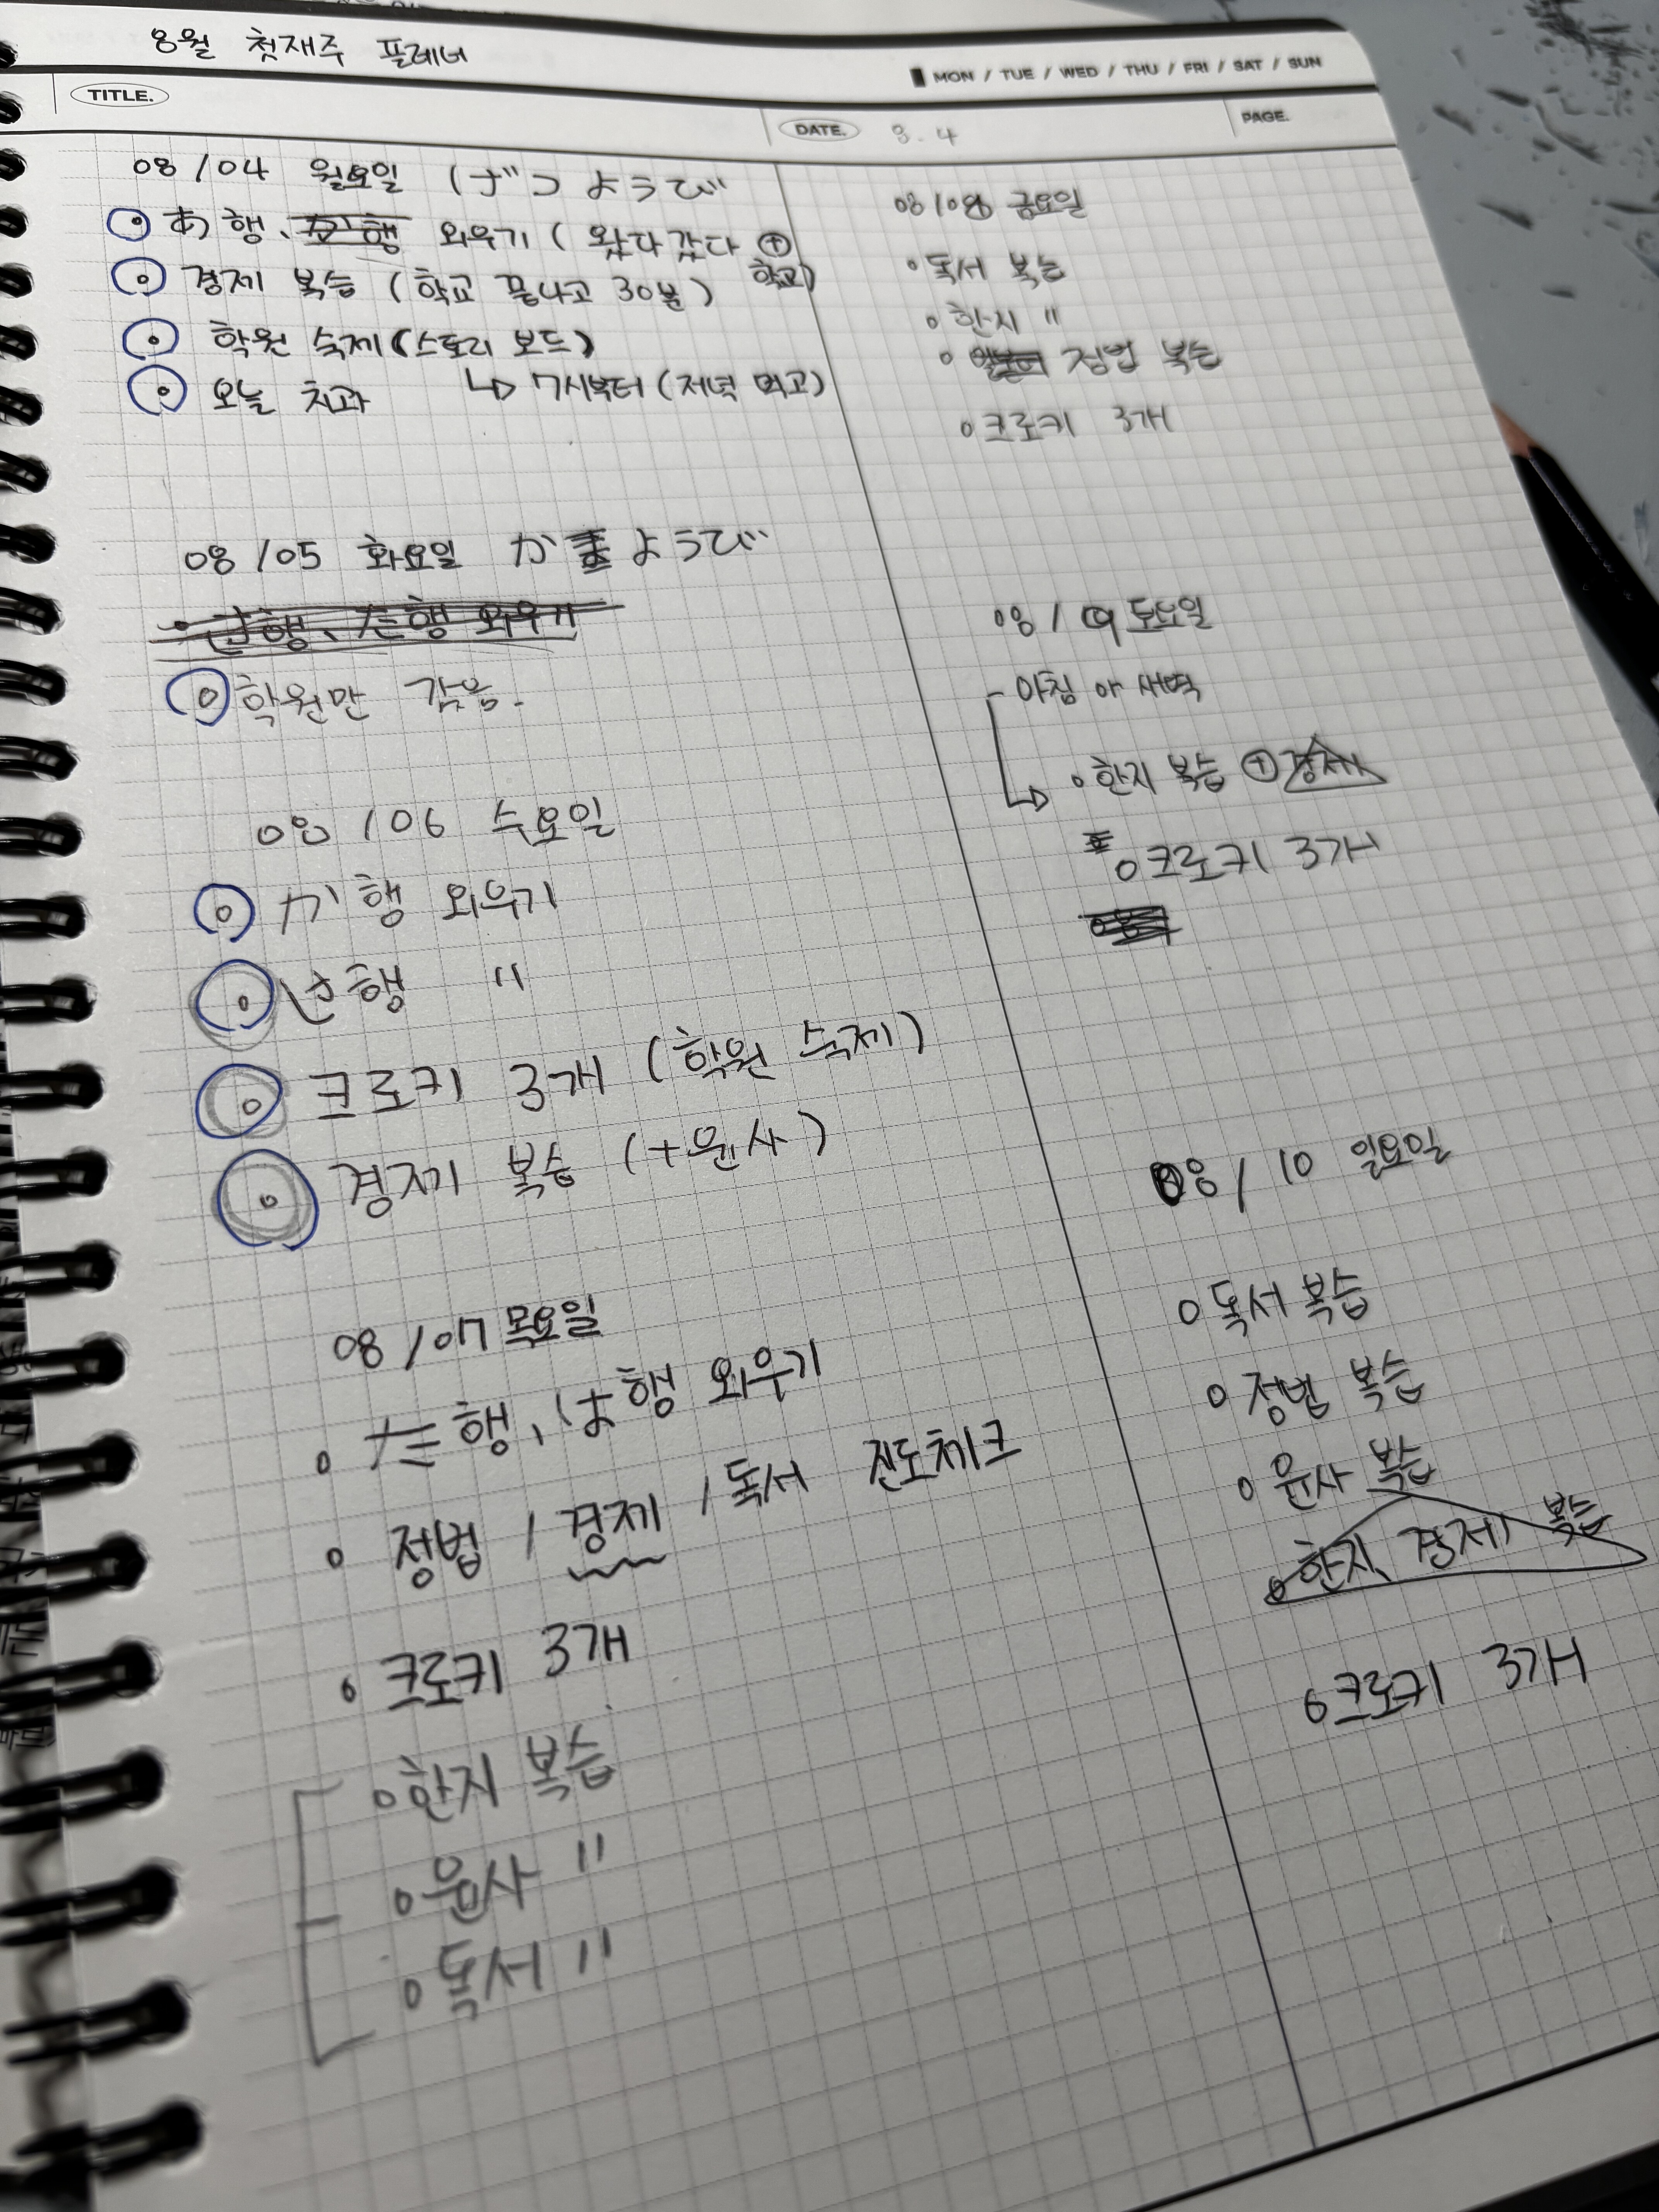 8월 첫재주 플레너
MON / TUE / WED / THU / FRI / SAT / SUN
TITLE.
DATE. 8.4
PAGE.
08/04 월요일 (げつようび
• あ행、か행 외우기 ( 왔다갔다 ⊕ 학교)
• 경제 복습 (학교 끝나고 30분)
• 학원 숙제(스토리 보드)
↳ 7시부터 (저녁 먹고)
• 오늘 치과
08/05 화요일 かようび
• さ행、た행 외우기
• 학원만 갔음.
08/06 수요일
• か행 외우기
• さ행 〃
• 크로키 3개 (학원 숙제)
• 경제 복습 (+윤사)
08/07 목요일
• た행、は행 외우기
• 정법 / 경제 / 독서 진도체크
• 크로키 3개
• 한지 복습
• 윤사 〃
• 독서 〃
08/08 금요일
• 독서 복습
• 한지 〃
• 정법 복습
• 크로키 3개
08/09 토요일
- 아침 아 새벽
↳ • 한지 복습 ⊕ 경제
• 크로키 3개
08/10 일요일
• 독서 복습
• 정법 복습
• 윤사 복습
• 한지、경제 복습
• 크로키 3개